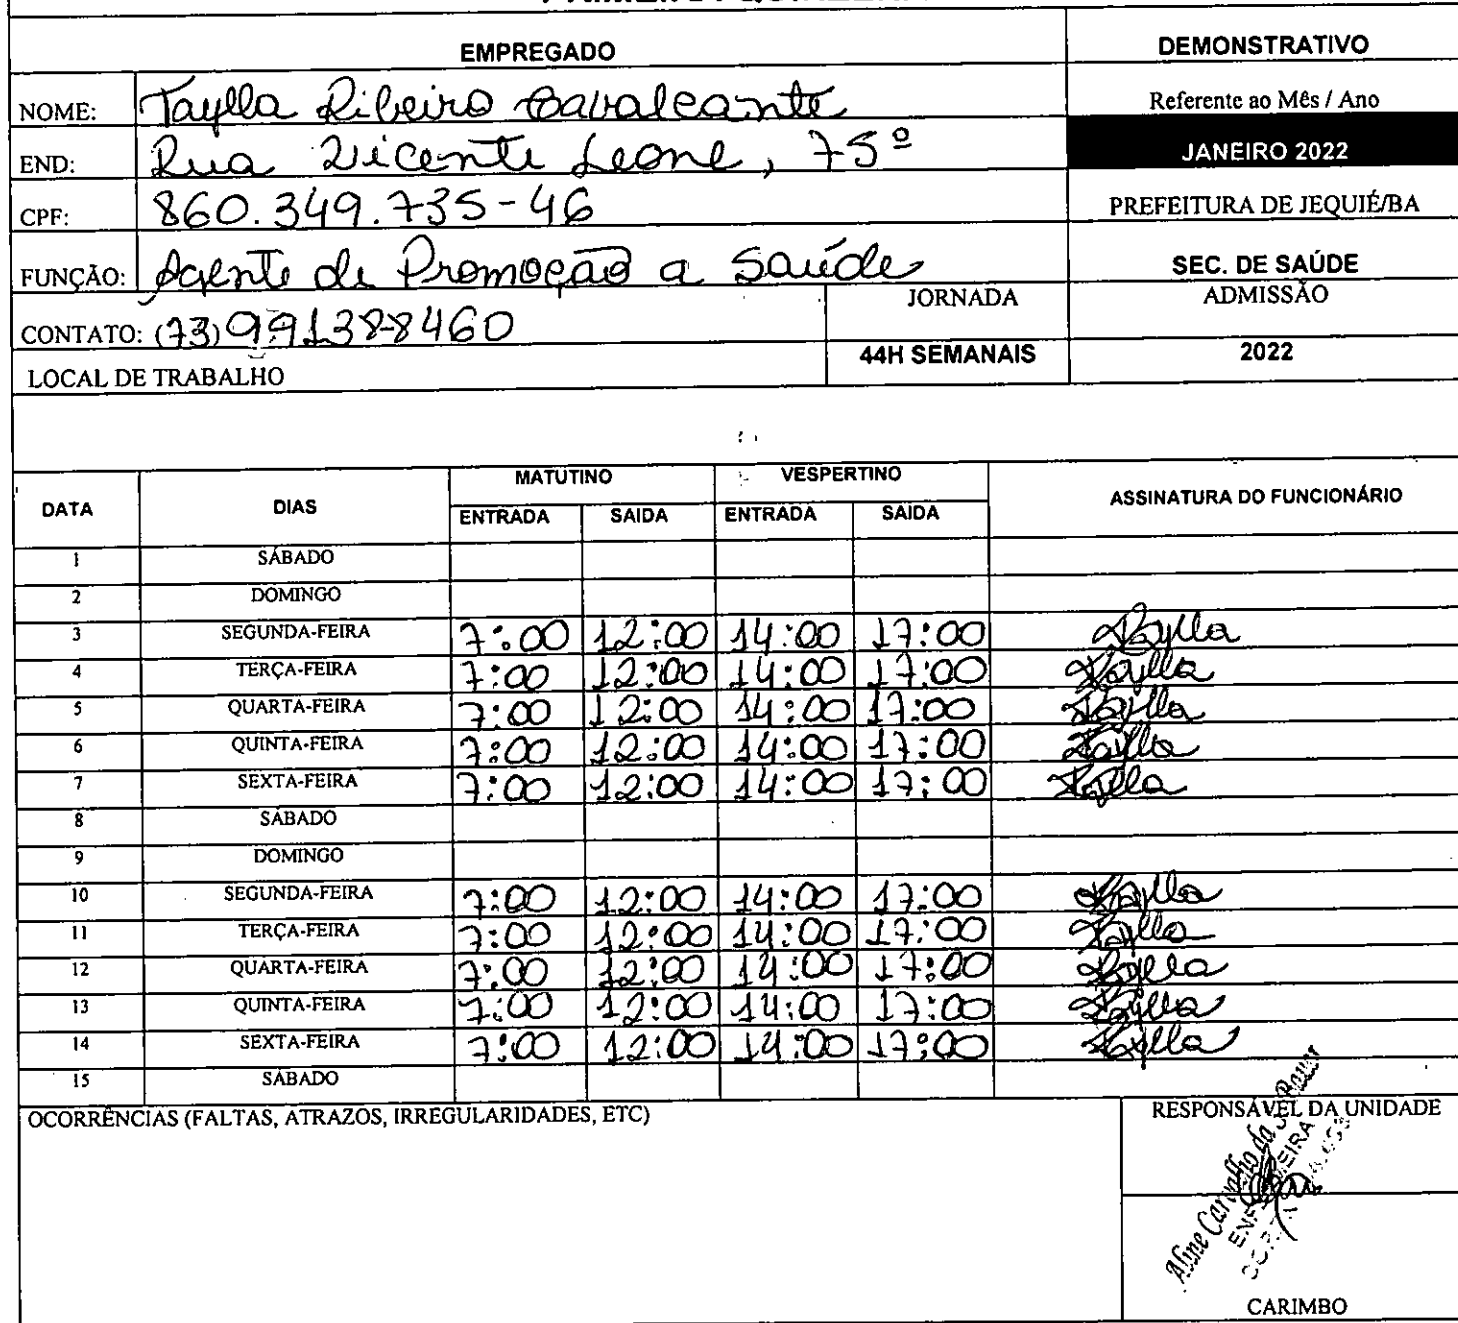 EMPREGADO
DEMONSTRATIVO
NOME: Taylla Ribeiro Cavalcante
Referente ao Mês / Ano
END: Rua Vicente Leone, 75º
JANEIRO 2022
CPF: 860.349.735-46
PREFEITURA DE JEQUIÉ/BA
FUNÇÃO: Agente de Promoção a Saúde
SEC. DE SAÚDE
JORNADA
ADMISSÃO
CONTATO: (73) 991388460
44H SEMANAIS
2022
LOCAL DE TRABALHO
DATA DIAS MATUTINO VESPERTINO ASSINATURA DO FUNCIONÁRIO
ENTRADA SAIDA ENTRADA SAIDA
1 SÁBADO
2 DOMINGO
3 SEGUNDA-FEIRA 7:00 12:00 14:00 17:00 Taylla
4 TERÇA-FEIRA 7:00 12:00 14:00 17:00 Taylla
5 QUARTA-FEIRA 7:00 12:00 14:00 17:00 Taylla
6 QUINTA-FEIRA 7:00 12:00 14:00 17:00 Taylla
7 SEXTA-FEIRA 7:00 12:00 14:00 17:00 Taylla
8 SÁBADO
9 DOMINGO
10 SEGUNDA-FEIRA 7:00 12:00 14:00 17:00 Taylla
11 TERÇA-FEIRA 7:00 12:00 14:00 17:00 Taylla
12 QUARTA-FEIRA 7:00 12:00 14:00 17:00 Taylla
13 QUINTA-FEIRA 7:00 12:00 14:00 17:00 Taylla
14 SEXTA-FEIRA 7:00 12:00 14:00 17:00 Taylla
15 SÁBADO
OCORRÊNCIAS (FALTAS, ATRAZOS, IRREGULARIDADES, ETC)
RESPONSÁVEL DA UNIDADE
Aline Carvalho da
CARIMBO